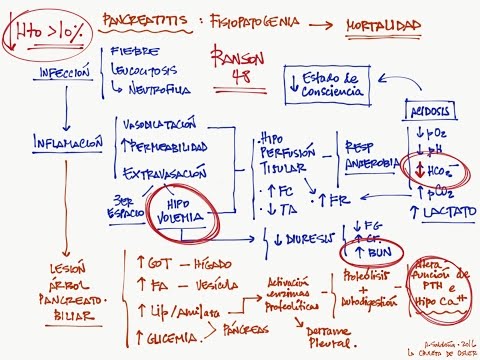 ↓Hto >10%
PANCREATITIS : FISIOPATOGENIA → MORTALIDAD
INFECCIÓN
FIEBRE
LEUCOCITOSIS
↳ NEUTROFILIA
RANSON
48
↓ Estado de
Consciencia
ACIDOSIS
↓ pO2
↓ pH
↓ HCO3-
↑ pCO2
↑ LACTATO
INFLAMACIÓN
VASODILATACIÓN
↑ PERMEABILIDAD
EXTRAVASACIÓN
3ER
ESPACIO
HIPO
VOLEMIA
HIPO
PERFUSIÓN
TISULAR
↑ FC
↓ TA
RESP
ANAEROBIA
↑ FR
↓ DIURESIS
↓ FG
↑ CF.
↑ BUN
LESIÓN
ÁRBOL
PANCREATO
BILIAR
↑ GOT – HÍGADO
↑ FA – VESÍCULA
↑ Lip/Amilasa
↑ GLICEMIA
PÁNCREAS
Activación
enzimas
Proteolíticas
Proteólisis
+
Autodigestión
Derrame
Pleural.
Altera
Función de
PTH e
Hipo Ca++
2016
LA LIBRETA DE OSLER